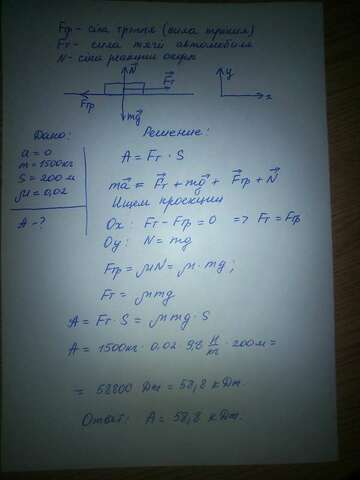 Fтр - сила трения (сила трения)
Fт - сила тяги автомобиля
N - сила реакции опоры
N Fт y
Fтр x
mg
Дано: Решение:
a = 0
m = 1500кг
S = 200 м
μ = 0,02
A - ?
A = Fт · S
ma = Fт + mg + Fтр + N
Ищем проекции
Ox: Fт - Fтр = 0 => Fт = Fтр
Oy: N = mg
Fтр = μN = μ · mg;
Fт = μmg
A = Fт · S = μmg · S
A = 1500кг · 0,02 · 9,8 Н/кг · 200м =
= 58800 Дж = 58,8 кДж.
Ответ: A = 58,8 кДж.